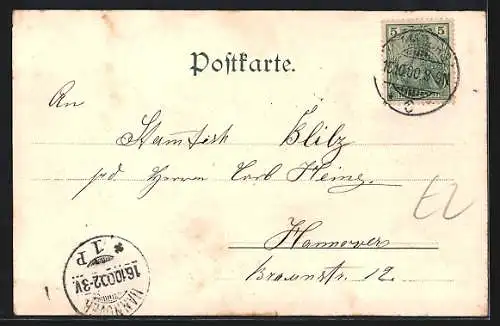 5 5
16.10.00. 8-9N
Postkarte.
An
Stammtisch Blitz
p.d. Herrn Carl Heine.
Hannover
Braunstr. 12.
HANNOVER
16.10.00. 2-3V.
* 1P